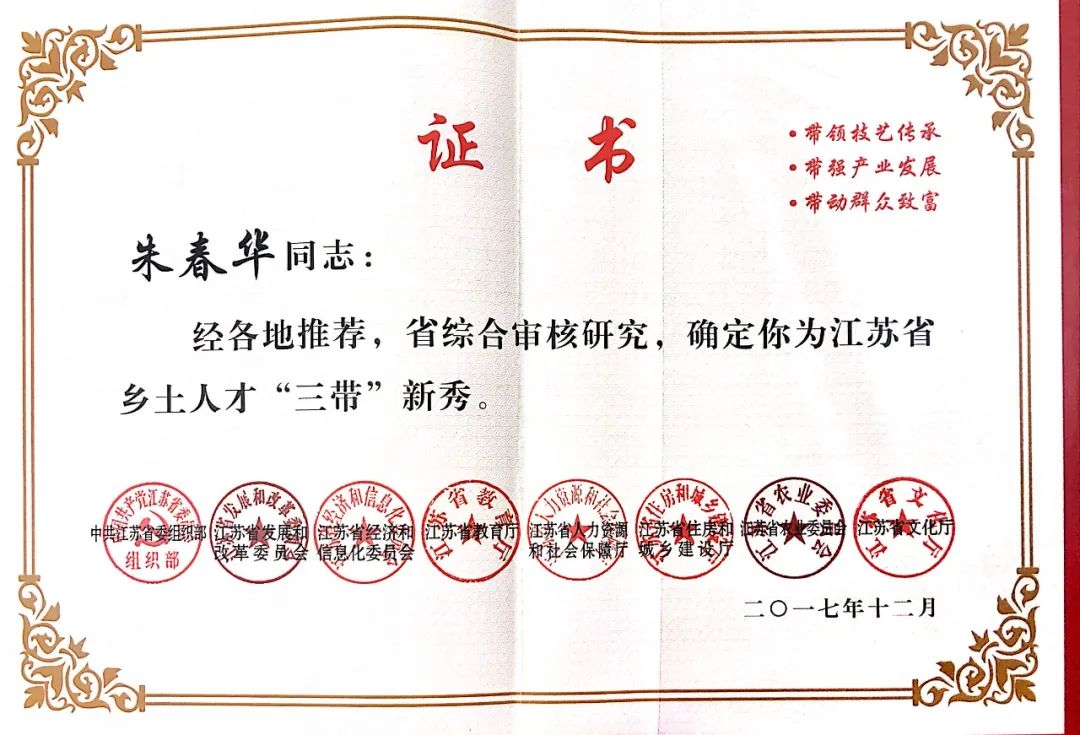 证书
·带领技艺传承
·带强产业发展
·带动群众致富
朱春华同志：
经各地推荐，省综合审核研究，确定你为江苏省
乡土人才“三带”新秀。
中共江苏省委组织部
江苏省发展和
改革委员会
江苏省经济和
信息化委员会
江苏省教育厅
江苏省人力资源
和社会保障厅
江苏省住房和
城乡建设厅
江苏省农业委员会
江苏省文化厅
组织部
二〇一七年十二月